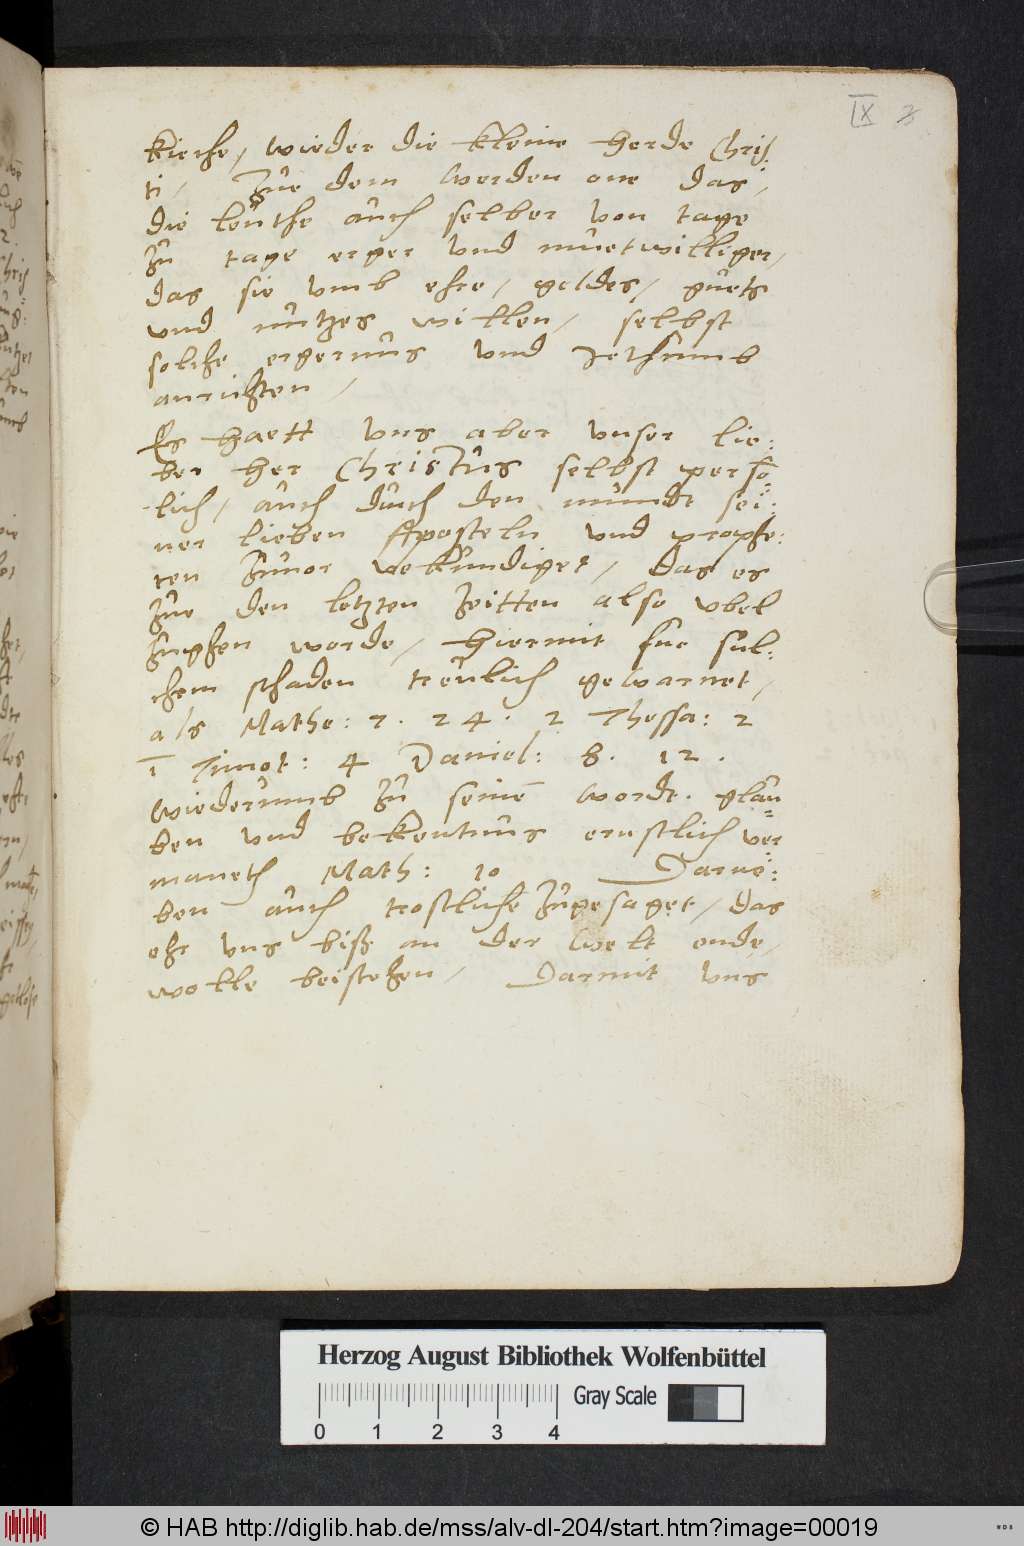 IX 3
kirche, wieder die kleine herde Chris
ti, Zue dem werden one das,
die leuthe auch selber von tage
zu tage erger vnd muetwilliger,
das sie vmb ehre, geldes, guets
vnd nutzes willen, selbst
solche ergernus vnd Irthumb
anrichten,
Es haett vns aber vnser lie:
ber her ChrisTus selbst perso
lich, auch durch den mundt sei:
ner lieben Aposteln vnd prophe:
ten Zuuor vekundiget, Das es
Zue den letzten Zeitten also vbel
Zugehen worde, Hiermit fur sul:
chem schaden treulich gewarnet,
als Mathe: 7. 24. 2 Thessa: 2
1 Timot: 4 Daniel: 8. 12.
Wiederumb Zu seinē worde. glau
ben vnd bekentnus ernstlich ver
maneth Math: 10 Darne:
ben auch trostliche Zugesaget, das
ehr vns biß an der welt ende,
wolle beistehen, Darmit vns
Herzog August Bibliothek Wolfenbüttel
Gray Scale
0 1 2 3 4
© HAB http://diglib.hab.de/mss/alv-dl-204/start.htm?image=00019